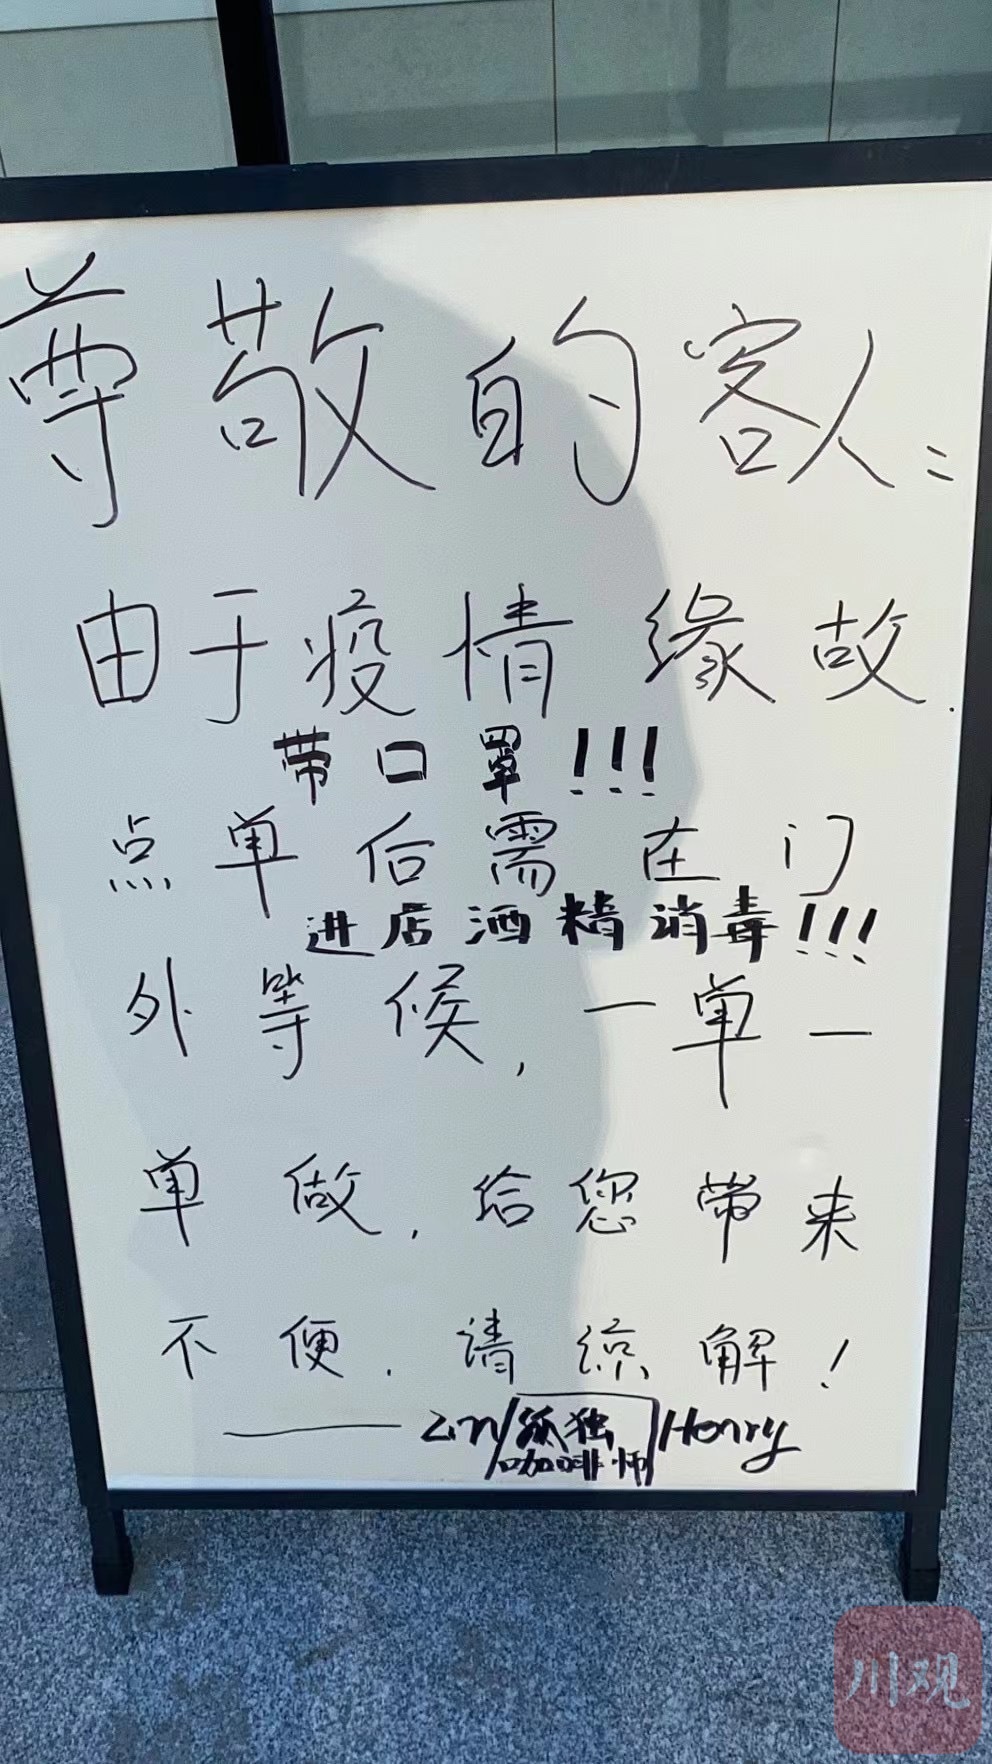 尊敬的客人:
由于疫情缘故.
带口罩!!!
点单后需在门
进店酒精消毒!!!
外等候,一单一
单做,给您带来
不便.请谅解!
——Zin/孤独/Henry
咖啡师
川观